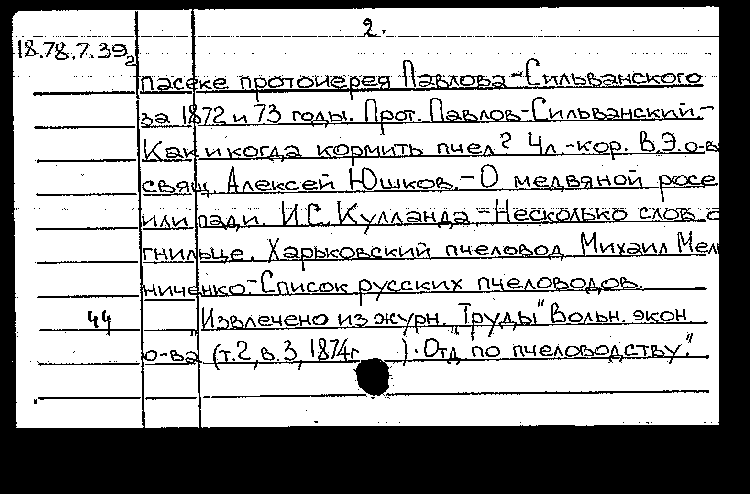 2.
18.78.7.39₂
пасеке протоиерея Павлова-Сильванского
за 1872 и 73 годы. Прот. Павлов-Сильванский.-
Как и когда кормить пчел? Чл.-кор. В.Э.о-в
свящ. Алексей Юшков.-О медвяной росе
или пади. И.С. Кулланда.-Несколько слов о
гнильце. Харьковский пчеловод Михаил Мел
ниченко-Список русских пчеловодов.
44 „Извлечено из журн. „Труды" Вольн. экон
о-ва (т.2, в.3, 1874г ). Отд по пчеловодству."